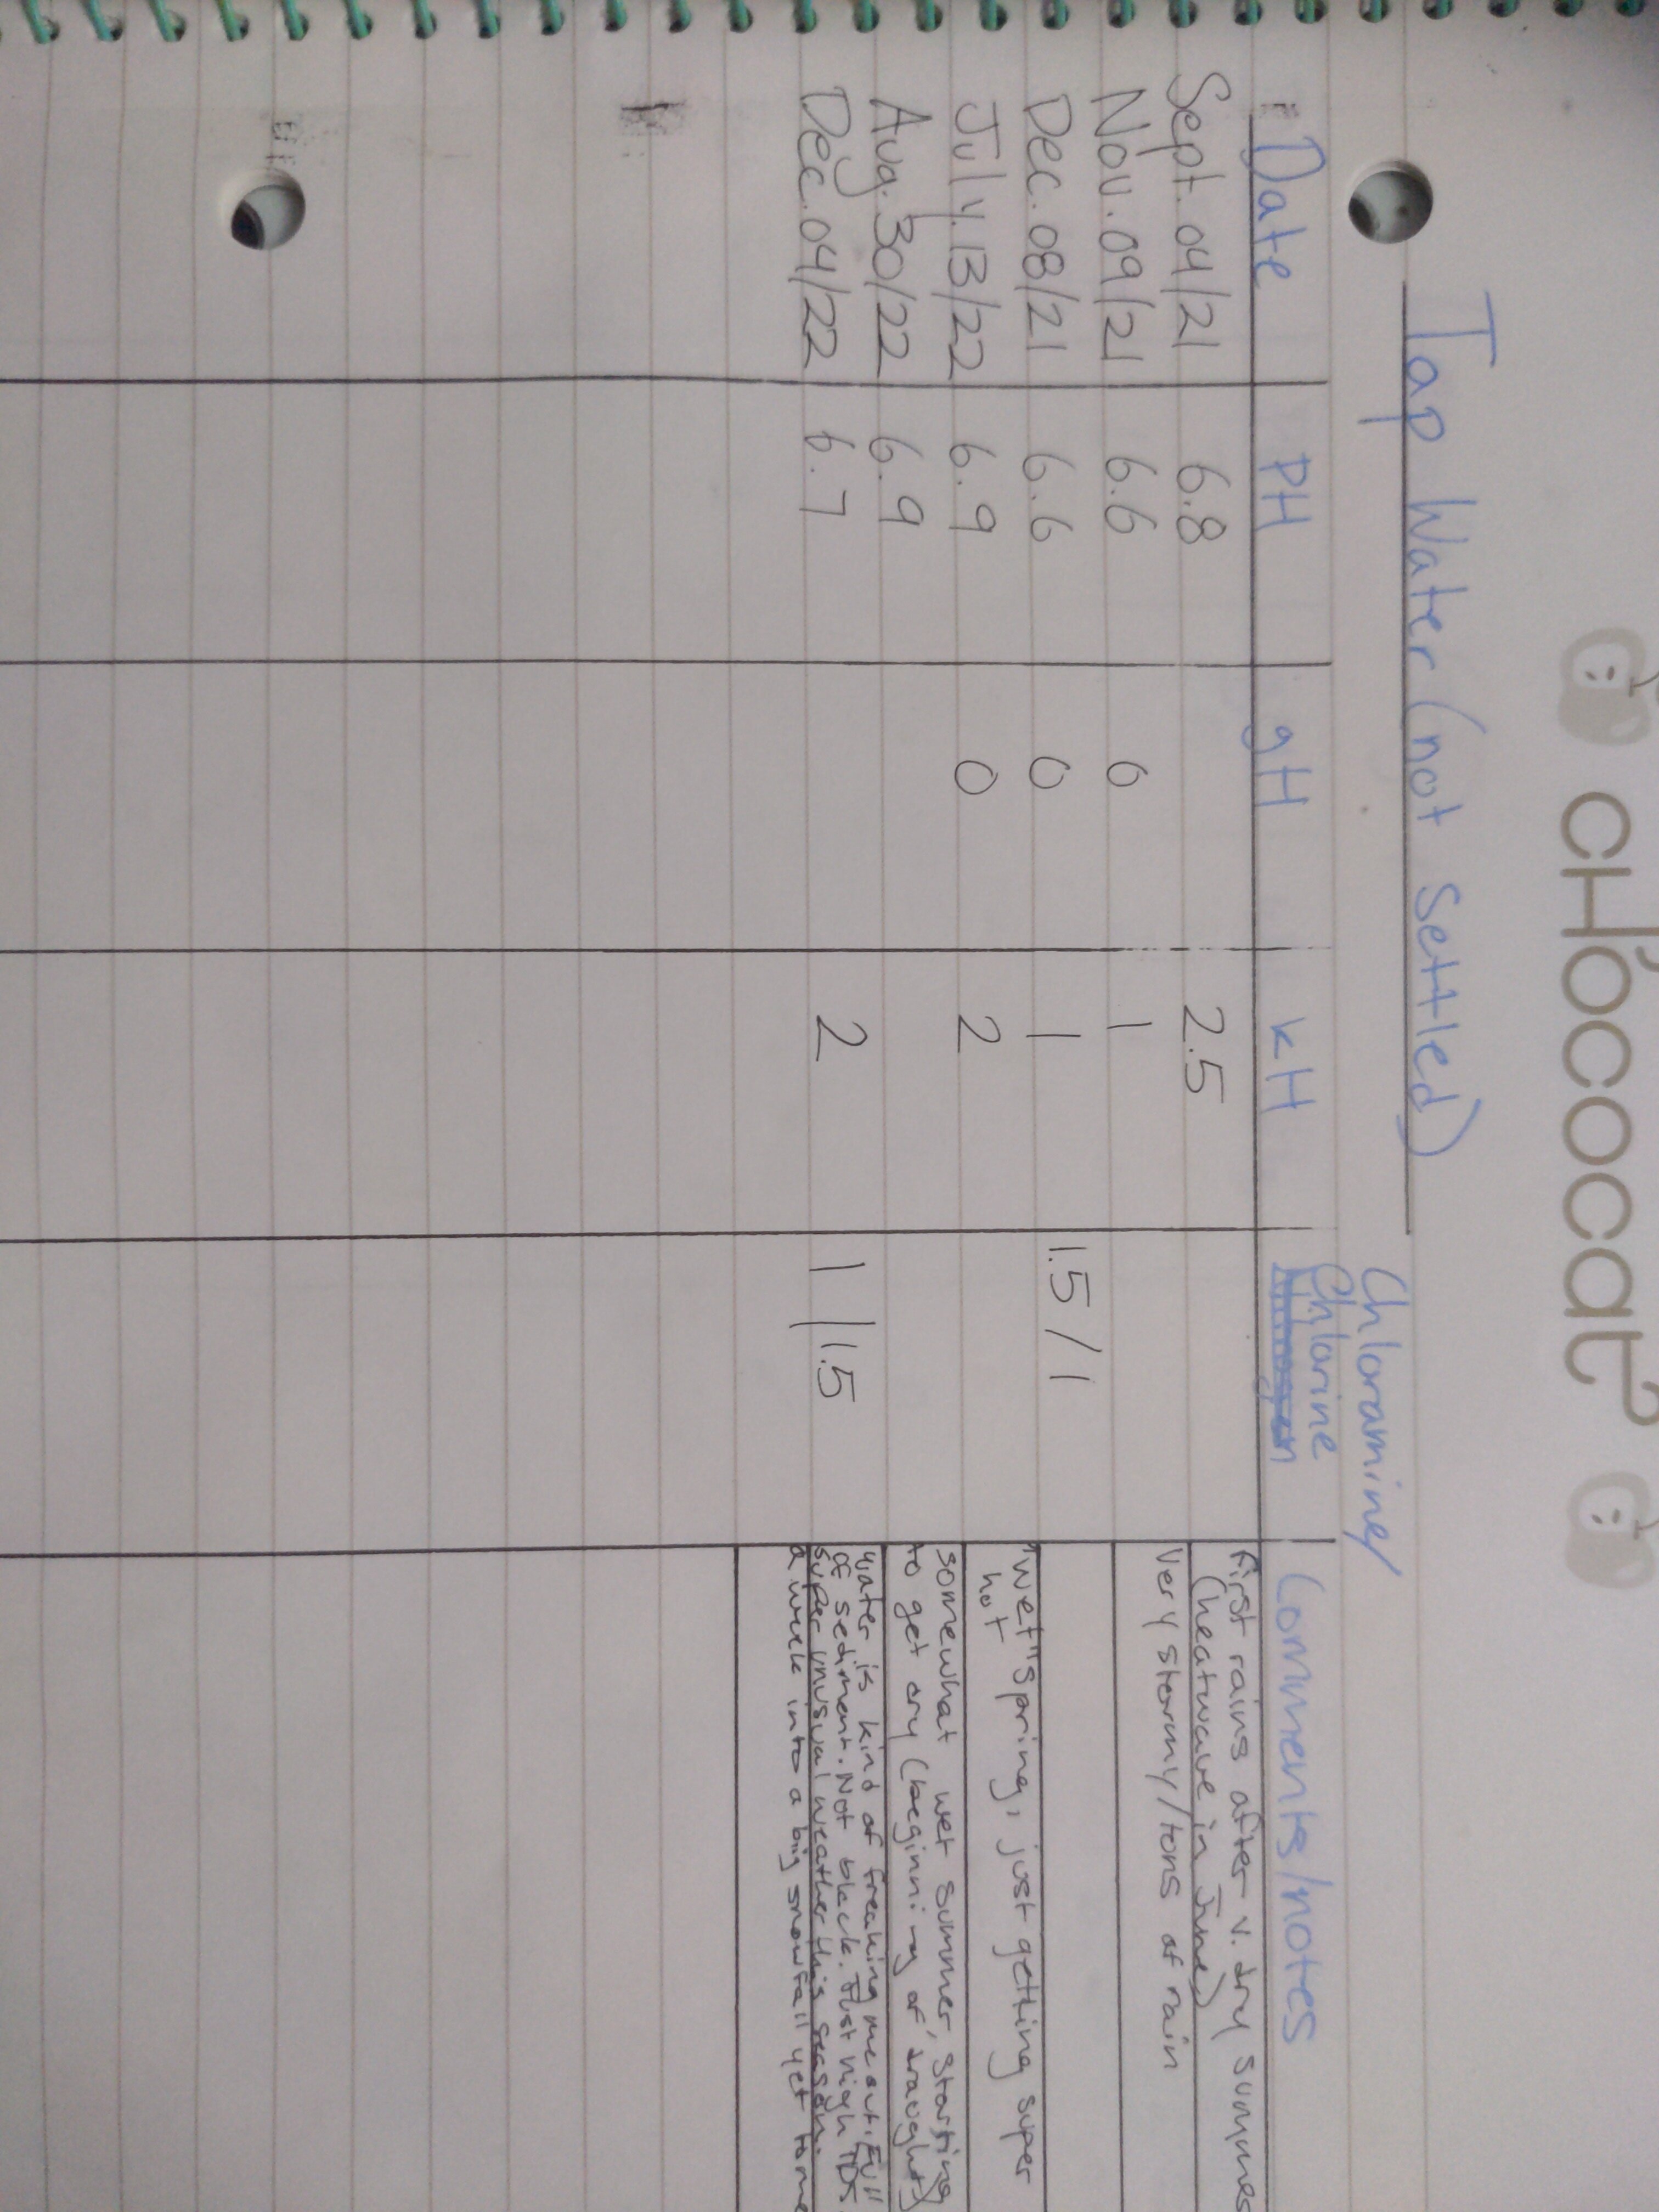 CHOCOCAT
Tap Water (not settled)
Chloramine/
Date PH gH kH Chlorine Comments/notes
Sept. 04/21 6.8 2.5 First rains after v. dry summer
(heatwave in June)
Nov. 09/21 6.6 0 1 Very stormy/tons of rain
Dec. 08/21 6.6 0 1 1.5/1
July. 13/22 6.9 0 2 "wet" spring, just getting super
hot
Aug. 30/22 6.9 somewhat wet summer, starting
to get dry (beginning of draught)
Dec. 04/22 6.7 2 1/1.5 water is kind of freaking me out. Full
of sediment. Not black. Just high TDS.
super unusual weather this season.
a week into a big snowfall yet to me